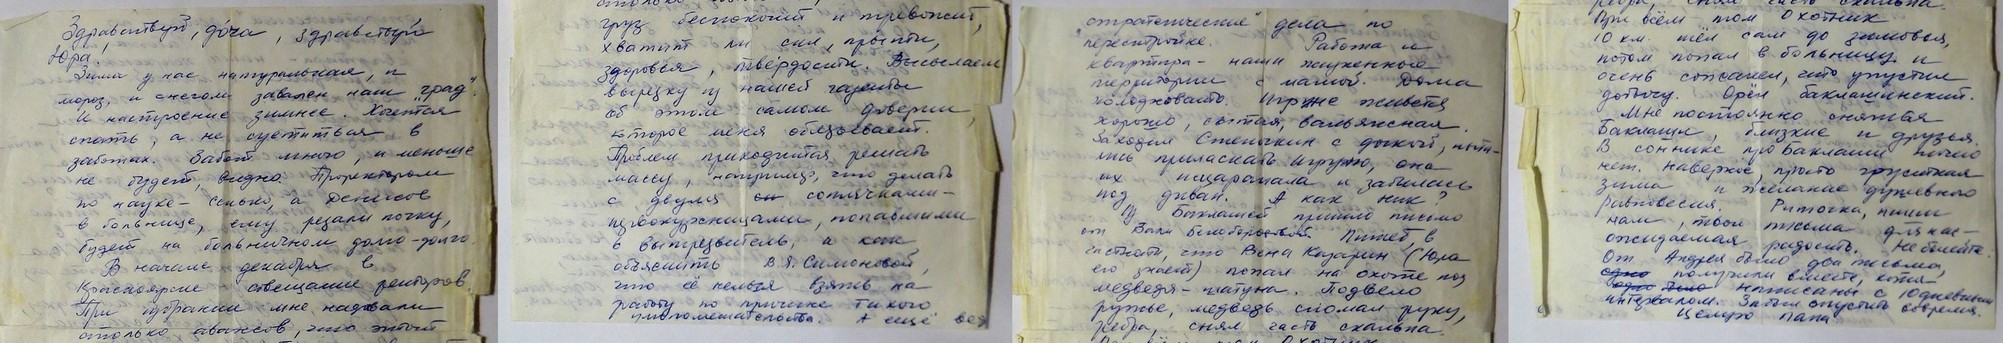 Здравствуй, доча, здравствуй
Юра!
Зима у нас натуральная, и
мороз, и снегом завален наш "град".
И настроение зимнее. Хочется
спать, а не суетиться в
заботах. Забот много, и меньше
не будет, видно. Проректором
по науке - Сенько, а Денисов
в больнице, ему резали почку,
будет на больничном долго-долго.
В начале декабря в
Красноярске совещание ректоров.
При избрании мне надавали
столько авансов, что этот
груз беспокоит и тревожит,
хватит ли сил, прыти,
здоровья, твёрдости. Высылаем
вырезку из нашей газеты
об этом самом доверии,
которое меня обязывает.
Проблем приходится решать
массу, например, что делать
с двумя сотлячками-
первокурсницами, попавшими
в вытрезвитель, а как
объяснить В.Я. Симоновой,
что её нельзя взять на
работу по причине тихого
умопомешательства. А ещё все
стратегические дела по
перестройке. Работа и
квартира - наши жизненные
территории с мамой. Дома
холодновато. Игруже живётся
хорошо, сытая, вальяжная.
Заходил Степочкин с дочкой, пыта-
лись приласкать Игружу, она
их исцарапала и забилась
под диван. А как Ник?
Из Баклашей пришло письмо
от Вали Белобородовой. Пишет, в
частности, что Вена Казарин (Юра
его знает) попал на охоте под
медведя-шатуна. Подвело
ружьё, медведь сломал руку,
рёбра, снял часть скальпа.
При всём том Охотник
10 км. шёл сам до зимовья,
потом попал в больницу и
очень сожалел, что упустил
добычу. Орёл баклашинский.
Мне постоянно снятся
Баклаши, близкие и друзья.
В соннике про Баклаши ничего
нет. Наверное, просто грустная
зима и желание душевного
равновесия. Риточка, пиши
нам, твои письма для нас -
ожидаемая радость. Не болейте.
От Андрея было два письма,
получили вместе, хотя
написаны с 10дневным
интервалом. Забыл опустить вовремя.
Целую папа